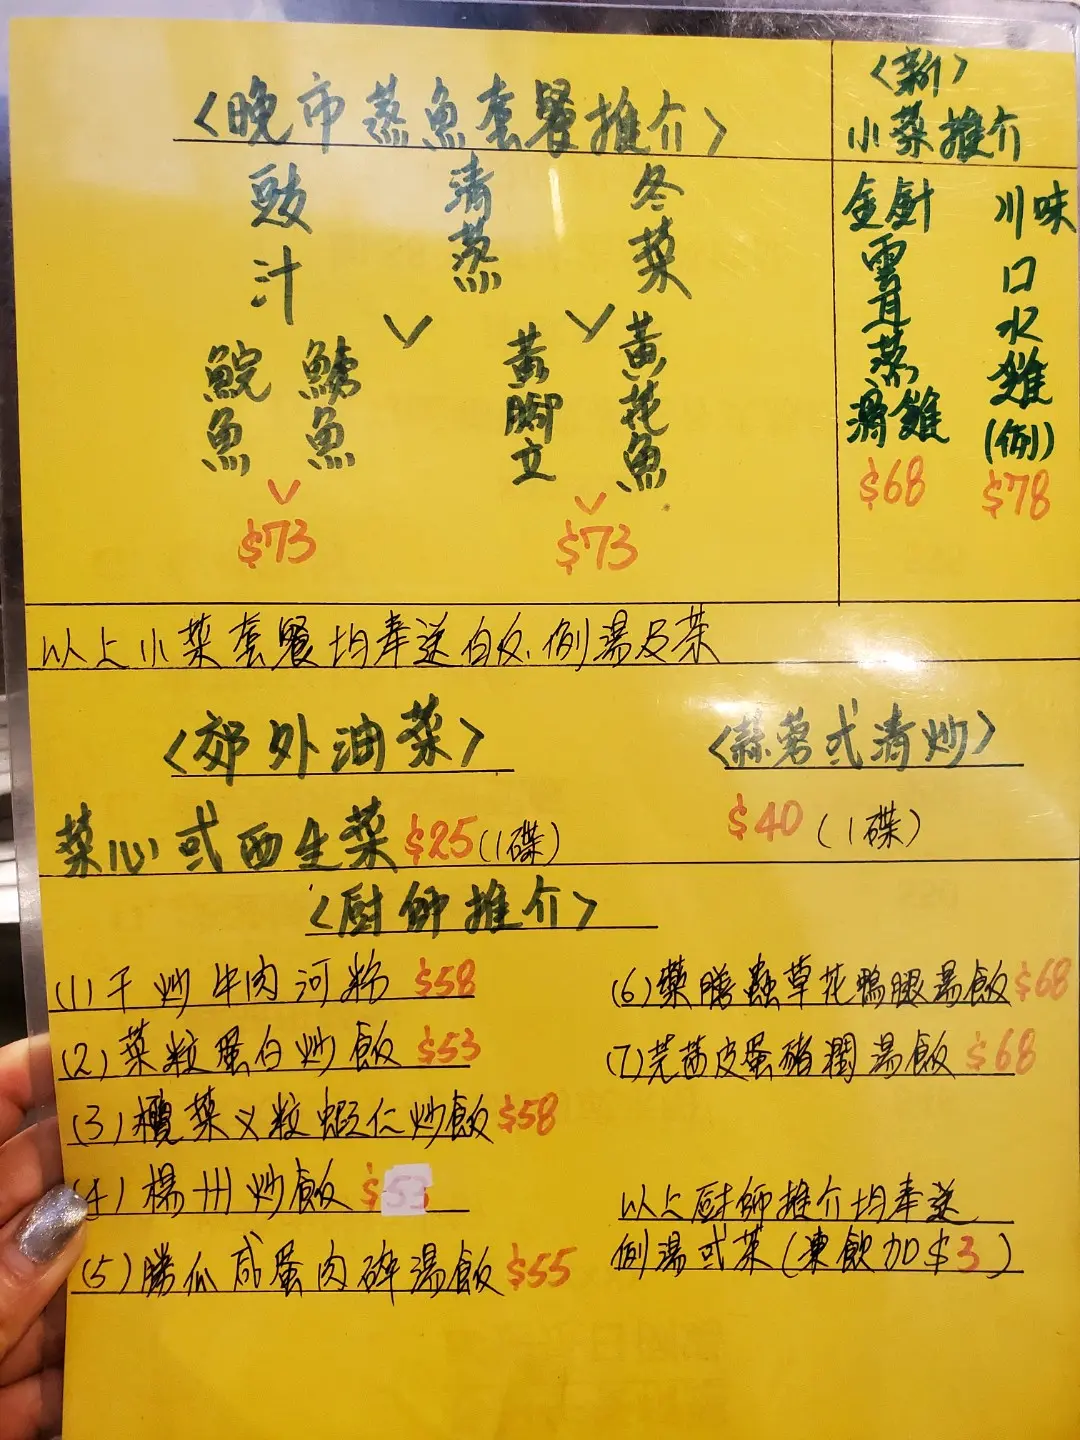 <晚市蒸魚套餐推介>
豉汁
清蒸
冬菜
鯇魚
鱅魚
$73
黃腳立
黃花魚
$73
<新>
小菜推介
金厨
雲耳蒸
滑雞
$68
川味
口水雞
(例)
$78
以上小菜套餐均奉送白反、例湯及茶
<郊外油菜>
菜心或西生菜 $25(1碟)
<蒜蓉式清炒>
$40 (1碟)
<厨師推介>
(1)干炒牛肉河粉 $58
(2)菜粒蛋白炒飯 $53
(3)欖菜乂粒蝦仁炒飯 $58
(4)楊州炒飯 $53
(5)勝瓜咸蛋肉碎湯飯 $55
(6)藥膳蟲草花鴨腿湯飯 $68
(7)芫茜皮蛋豬潤湯飯 $68
以上厨師推介均奉送
例湯或茶(凍飲加$3)